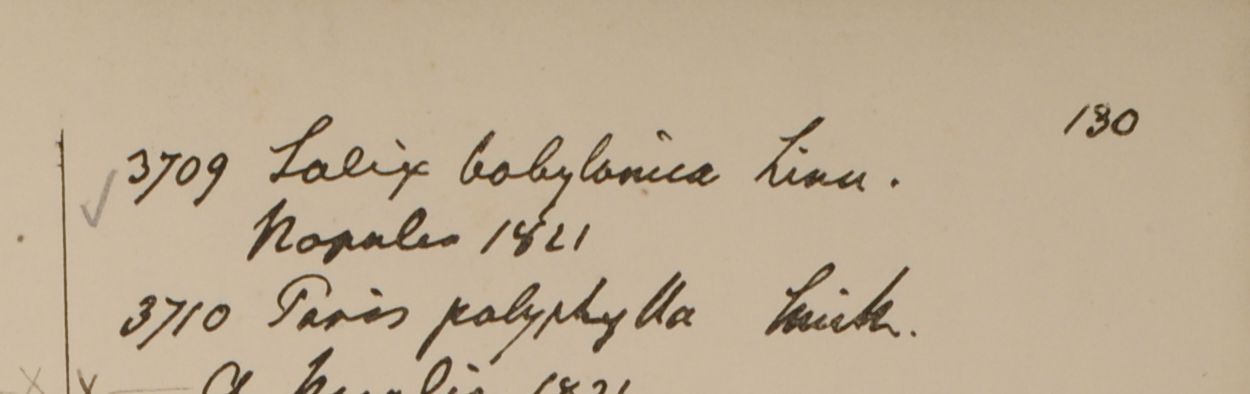 130
3709 Salix babylonica Linn.
Napalia 1821
3710 Paris polyphylla Smith.
1821